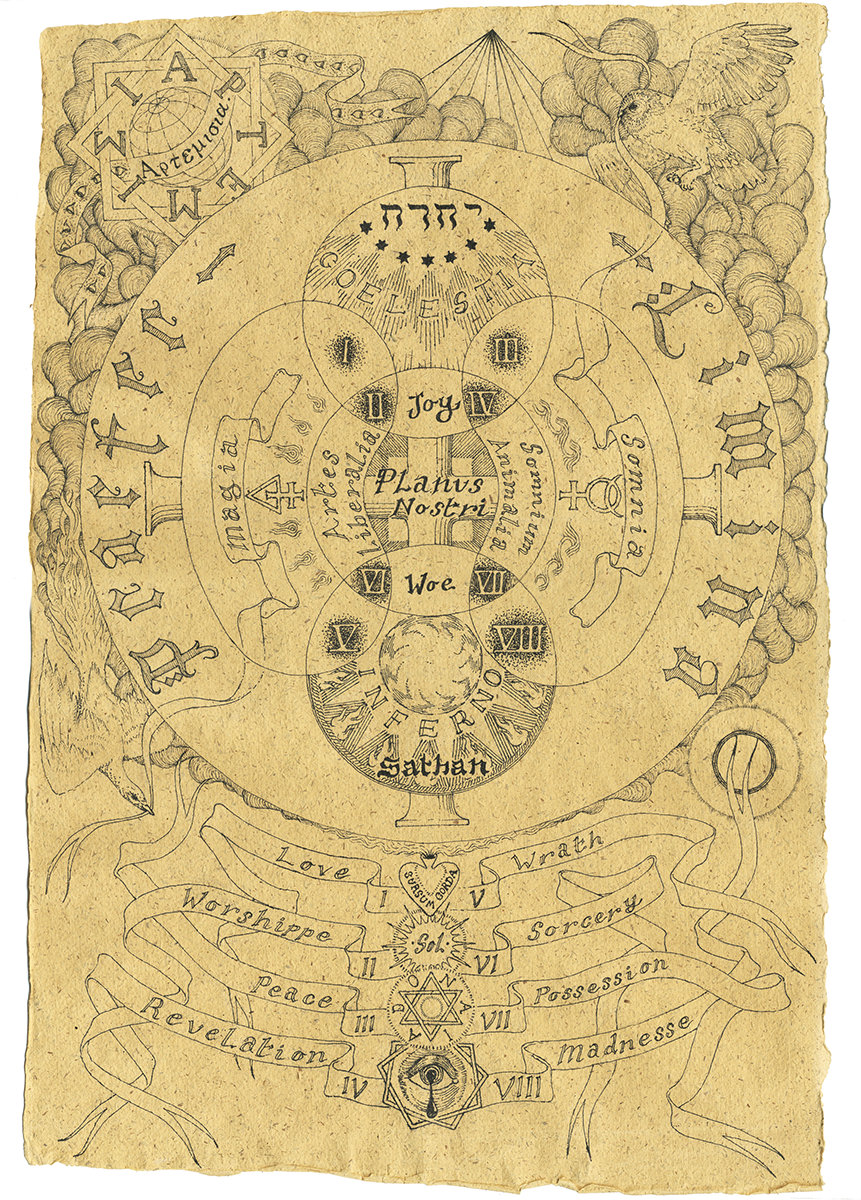 ΑΡΤΕΜΙΣΙ
Αρτεμισια.
יהוה
COELESTIV
I
III
II
Joy
IV
Limina
Magia
Artes
liberalia
Planus
Nostri
Somnium
Animalia
Somnia
VI
Woe
VII
V
VIII
INFERNO
Sathan
Love
I
SURSUM CORDA
V
Wrath
Worshippe
II
·Sol·
VI
Sorcery
Peace
III
ADONA
VII
Possession
Revelation
IV
VIII
Madnesse